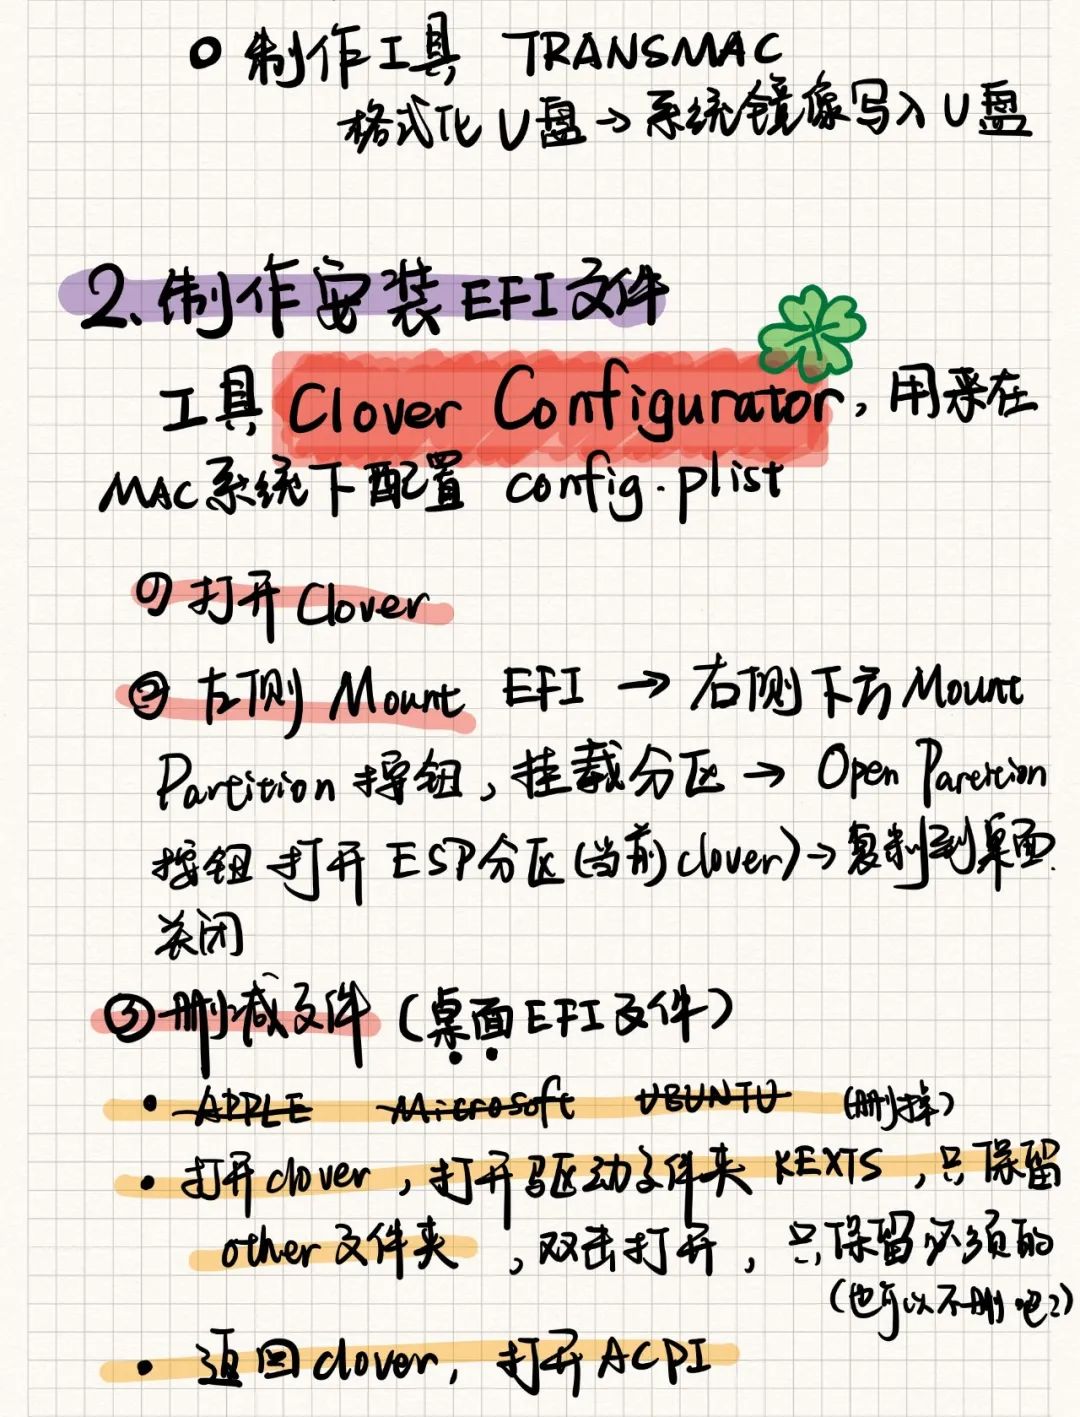 ○ 制作工具 TRANSMAC
格式化U盘→系统镜像写入U盘
2.制作安装EFI文件
工具 Clover Configurator,用来在
MAC系统下配置 config.plist
①打开Clover
②左侧 Mount EFI → 右侧下方Mount
Partition 按钮,挂载分区 → Open Partition
按钮 打开 ESP分区(当前clover)→复制到桌面.
关闭
③删减文件 (桌面EFI文件)
• APPLE Microsoft UBUNTU (删掉)
• 打开clover,打开驱动文件夹 KEXTS,只保留
other文件夹,双击打开,只保留必须的
(也可以不删吧?)
• 返回clover,打开ACPI